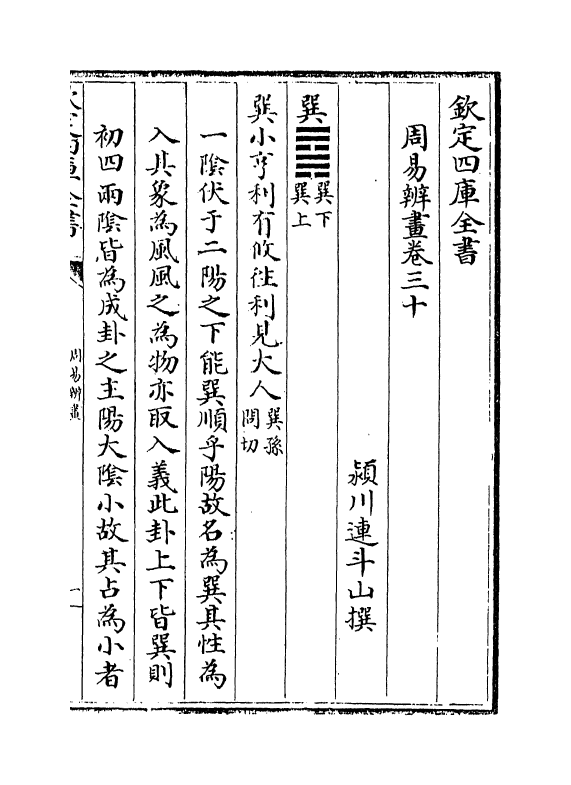 欽定四庫全書
周易辨畫卷三十
潁川連斗山撰
巽䷸巽下巽上
巽小亨利有攸往利見大人巽孫問切
一陰伏于二陽之下能巽順乎陽故名為巽其性為
入其象為風風之為物亦取入義此卦上下皆巽則
初四兩陰皆為成卦之主陽大陰小故其占為小者
欽定四庫全書
周易辨畫
一